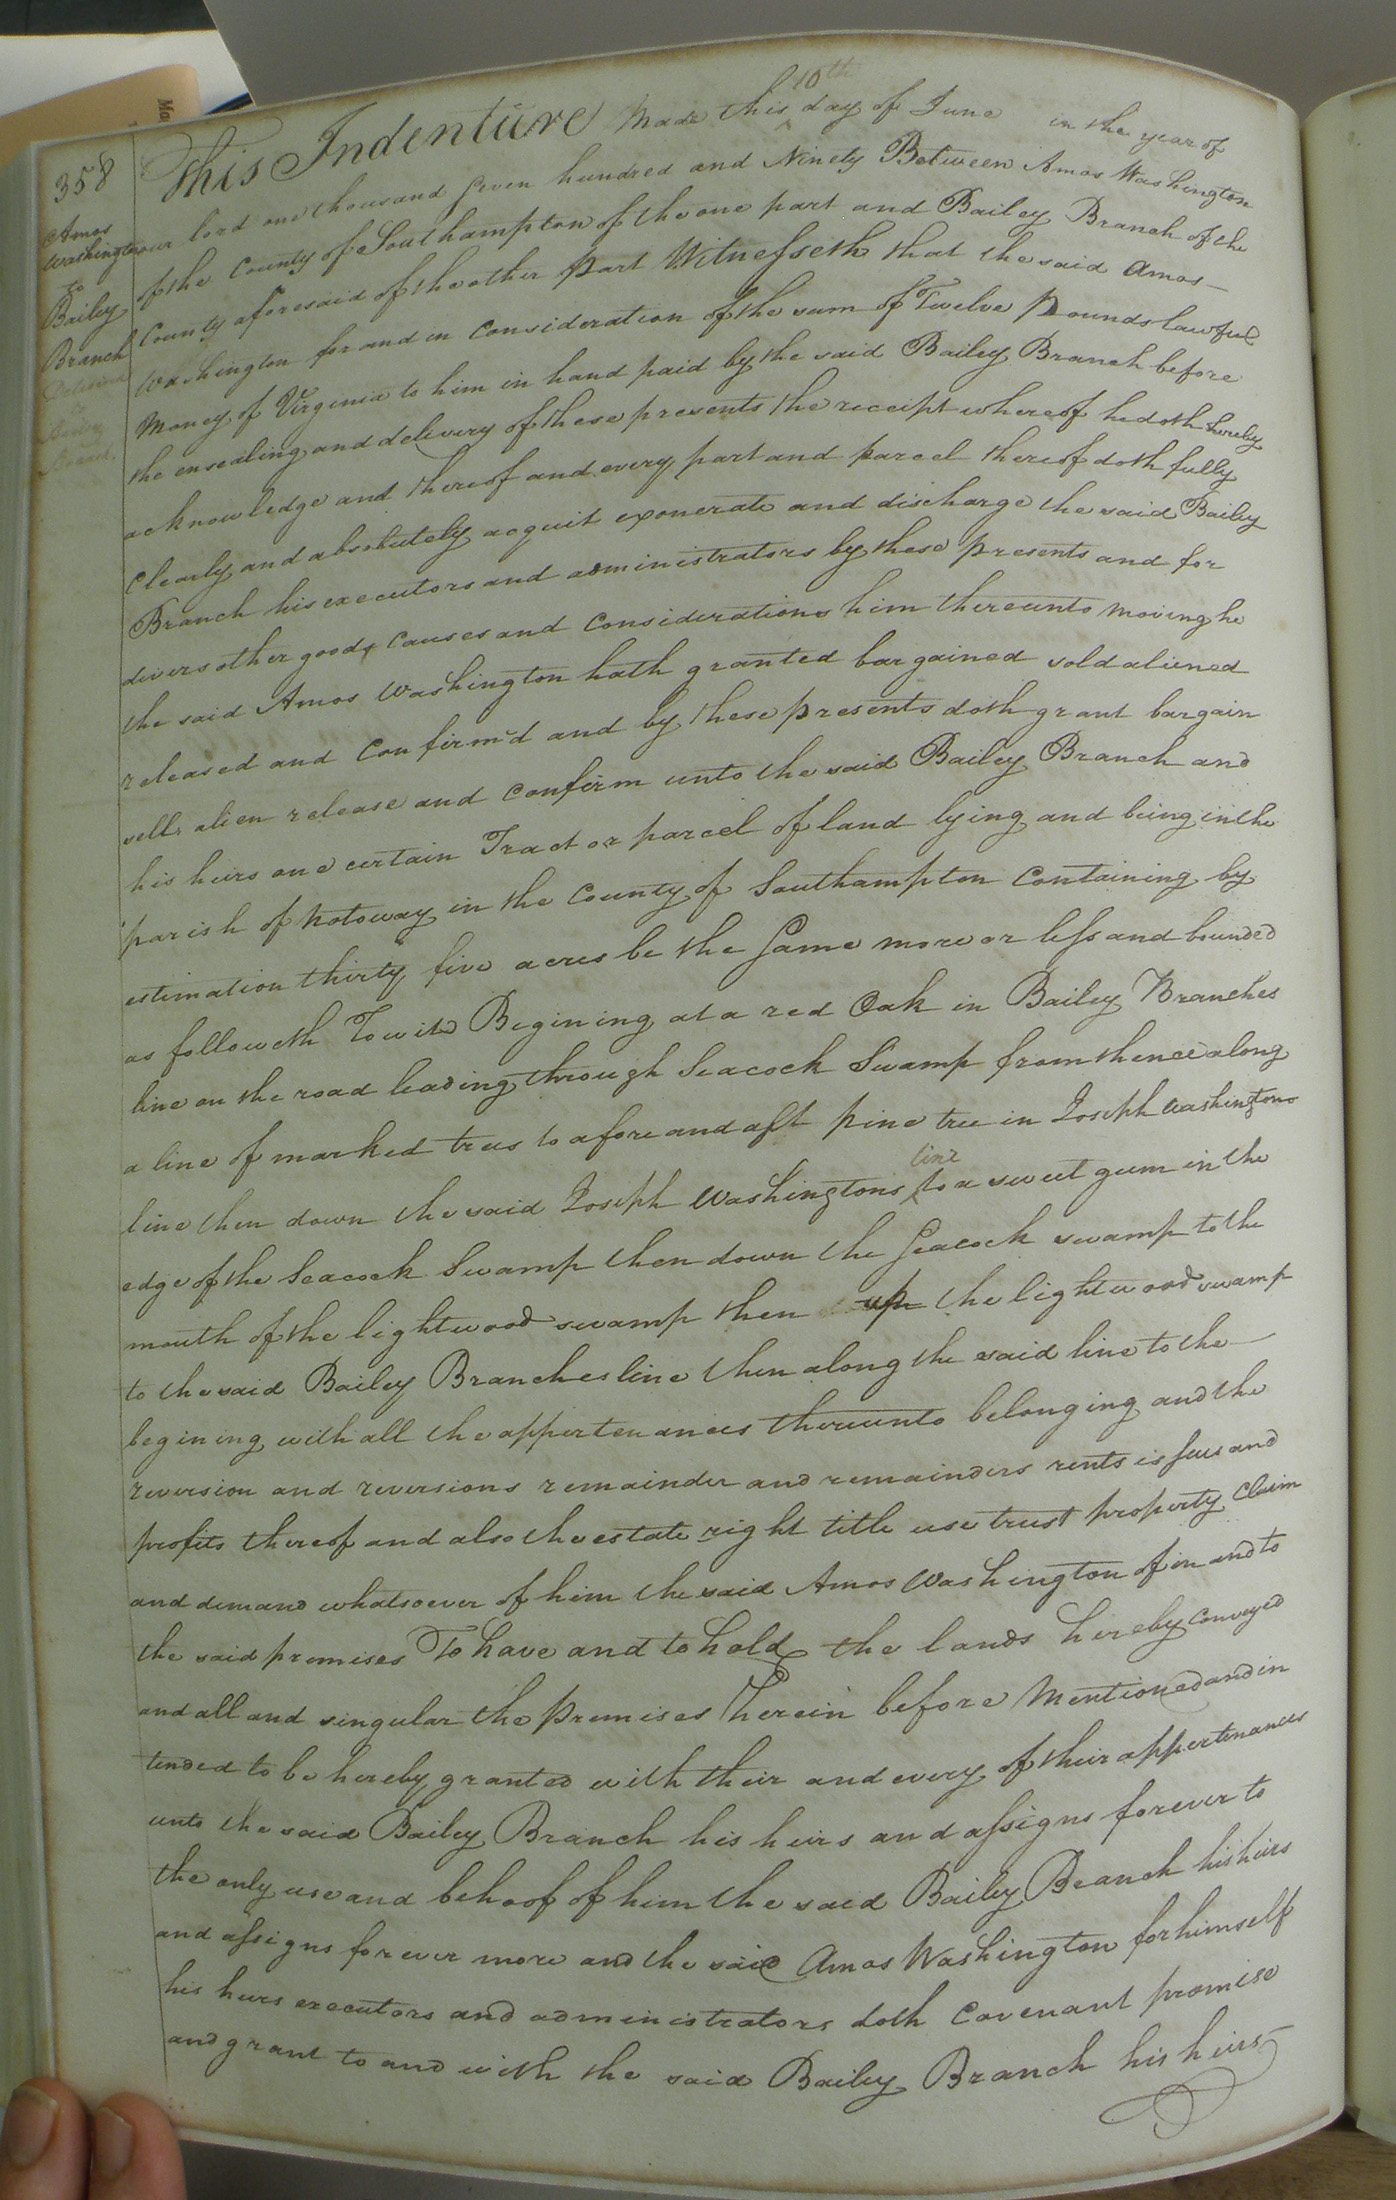 358
Amos
Washington
to
Bailey
Branch
Delivered
to
Bailey
Branch.
This Indenture Made this 10th day of June in the year of
our lord one thousand seven hundred and Ninety Between Amos Washington
of the County of Southampton of the one part and Bailey Branch of the
County aforesaid of the other part Witnesseth that the said Amos
Washington for and in Consideration of the sum of Twelve Pounds lawful
Money of Virginia to him in hand paid by the said Bailey Branch before
the ensealing and delivery of these presents the receipt whereof he doth hereby
acknowledge and thereof and every part and parcel thereof doth fully
Clearly and absolutely acquit exonerate and discharge the said Bailey
Branch his executors and administrators by these presents and for
divers other good causes and Considerations him thereunto moving he
the said Amos Washington hath granted bargained sold aliened
released and Confirm'd and by these presents doth grant bargain
sell alien release and Confirm unto the said Bailey Branch and
his heirs one certain Tract or parcel of land lying and being in the
parish of Notoway in the County of Southampton Containing by
estimation thirty five acres be the same more or less and bounded
as followeth Towit Begining at a red Oak in Bailey Branches
line on the road leading through Seacock Swamp from thence along
a line of marked trees to a fore and aft pine tree in Joseph Washingtons
line then down the said Joseph Washingtons line to a sweet gum in the
edge of the Seacock Swamp then down the Seacock swamp to the
mouth of the lightwood swamp then up the lightwood swamp
to the said Bailey Branches line then along the said line to the
begining with all the appertenances thereunto belonging and the
reversion and reversions remainder and remainders rents issues and
profits thereof and also the estate right title use trust property Claim
and demand whatsoever of him the said Amos Washington of in and to
the said premises To have and to hold the lands hereby conveyed
and all and singular the Premises herein before Mentioned and in
tended to be hereby granted with their and every of their appertenances
unto the said Bailey Branch his heirs and assigns forever to
the only use and behoof of him the said Bailey Branch his heirs
and assigns for ever more and the said Amos Washington for himself
his heirs executors and administrators doth Covenant promise
and grant to and with the said Bailey Branch his heirs